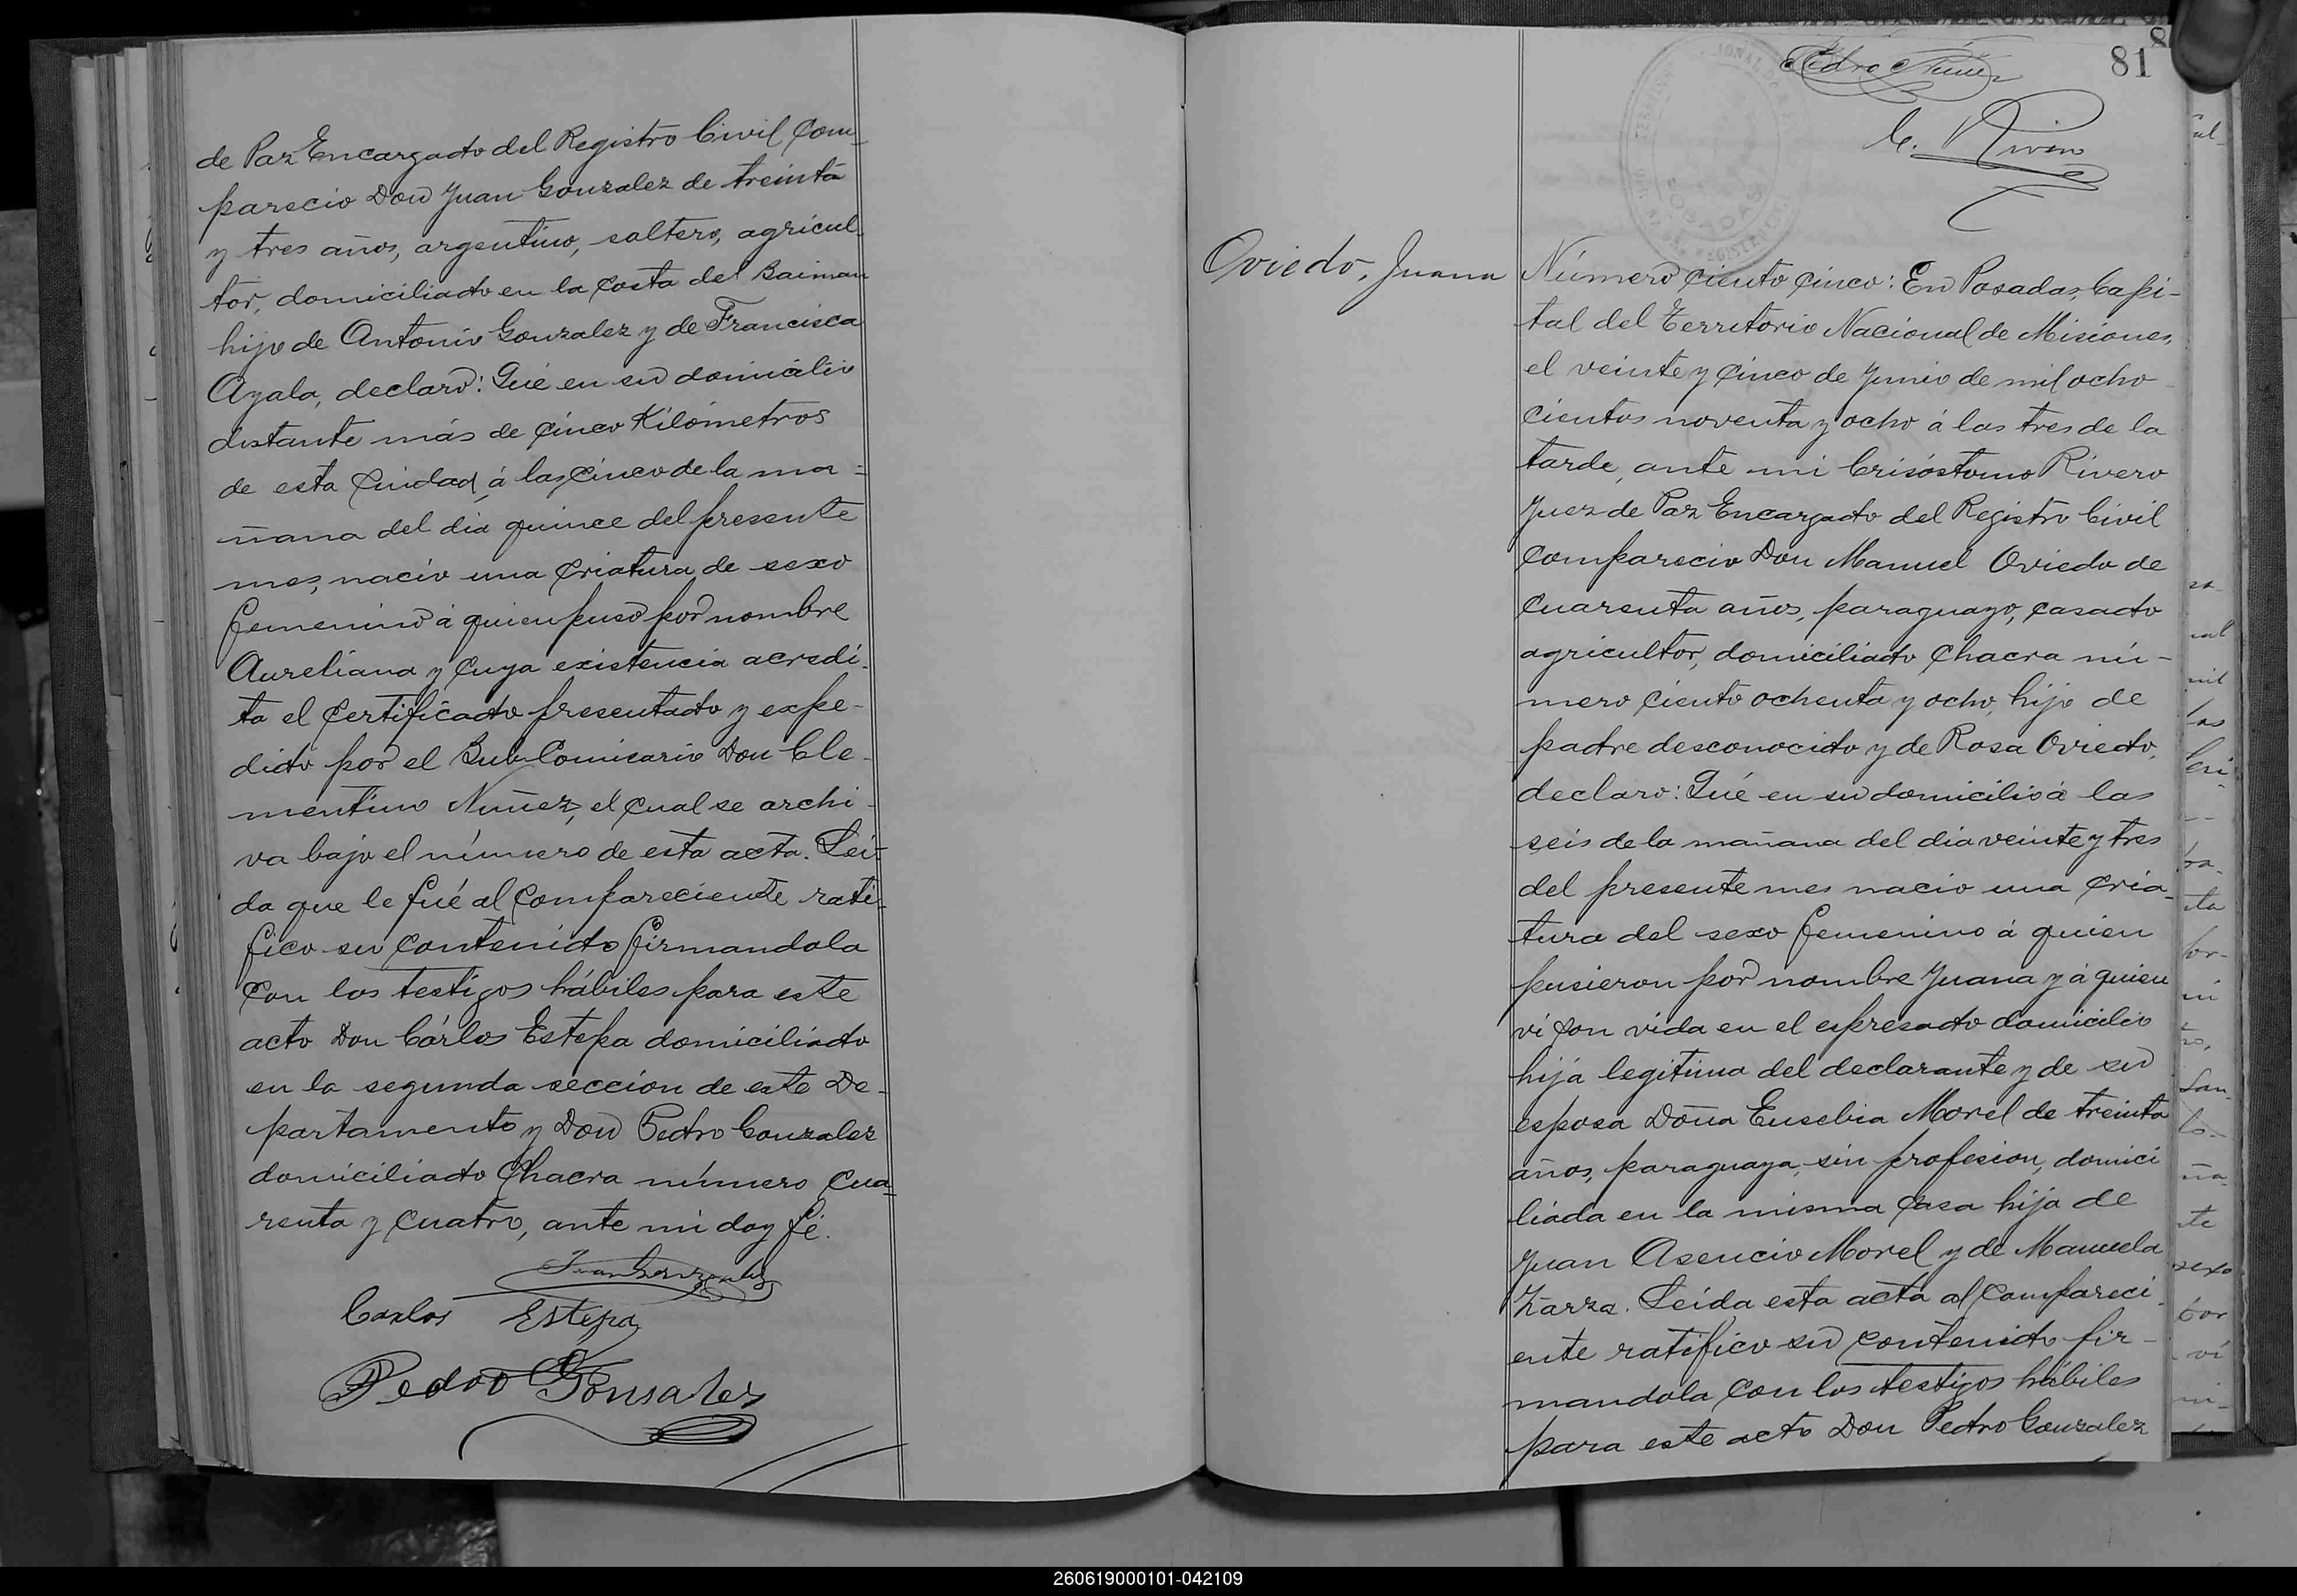 de Paz Encargado del Registro Civil com-
parecio Don Juan Gonzalez de treinta
y tres años, argentino, soltero, agricul-
tor, domiciliado en la costa del Zaiman
hijo de Antonio Gonzalez y de Francisca
Ayala, declaró: Qué en su domicilio
distante más de cinco Kilómetros
de esta ciudad, á las cinco de la ma=
ñana del dia quince del presente
mes, nacio una criatura de sexo
femenino á quien puso por nombre
Aureliana y cuya existencia acredi-
ta el certificado presentado y expe-
dido por el Sub-Comisario Don Cle-
mentino Nuñez, el cual se archi-
va bajo el número de esta acta. Lei-
da que le fué al compareciente rati-
fico su contenido firmandola
con los testigos hábiles para este
acto Don Cárlos Estepa domiciliado
en la segunda sección de este De-
partamento y Don Pedro Gonzalez
domiciliado Chacra número cua-
renta y cuatro, ante mi doy fé.
Juan Gonzalez
Carlos Estepa
Pedro Gonsales
81
Pedro Nuñez
C. Rivero
POSADAS
Oviedo, Juana
Número ciento cinco: En Posadas, Capi-
tal del Territorio Nacional de Misiones,
el veinte y cinco de Junio de mil ocho
cientos noventa y ocho á las tres de la
tarde, ante mi Crisóstomo Rivero
Juez de Paz Encargado del Registro Civil
comparecio Don Manuel Oviedo de
cuarenta años, paraguayo, casado
agricultor, domiciliado Chacra nú-
mero ciento ochenta y ocho, hijo de
padre desconocido y de Rosa Oviedo,
declaro: Qué en su domicilio á las
seis de la mañana del dia veinte y tres
del presente mes nacio una cria-
tura del sexo femenino á quien
pusieron por nombre Juana y á quien
vi con vida en el espresado domicilio
hija legitima del declarante y de su
esposa Doña Eusebia Morel de treinta
años, paraguaya, sin profesion, domici
liada en la misma casa hija de
Juan Asencio Morel y de Manuela
Zarza. Leida esta acta al compareci-
ente ratifico su contenido fir-
mandola con los testigos hábiles
para este acto Don Pedro Gonzalez
260619000101-042109